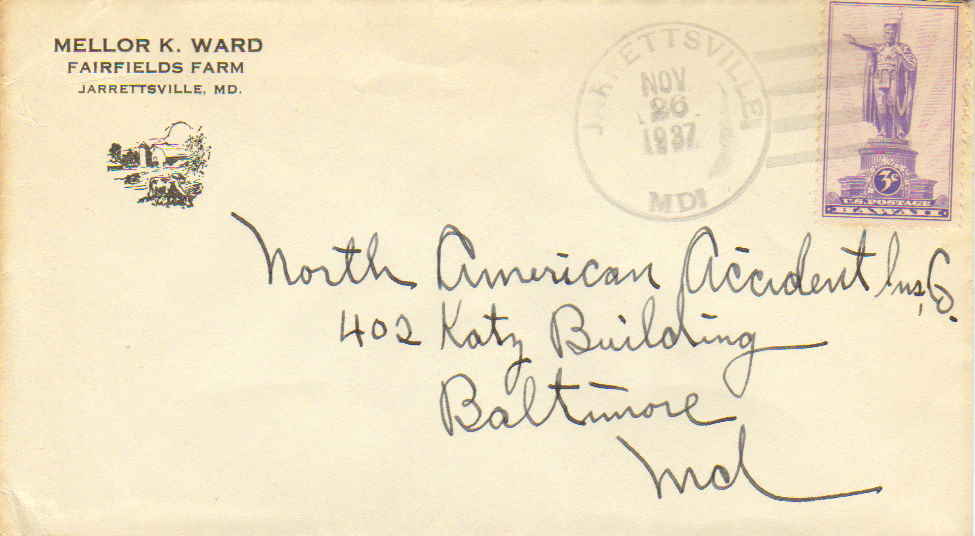 MELLOR K. WARD
FAIRFIELDS FARM
JARRETTSVILLE, MD.
JARRETTSVILLE,
NOV
26
1937
MD
3¢
U.S. POSTAGE
HAWAII
North American Accident Ins, Co.
402 Katz Building
Baltimore
Md